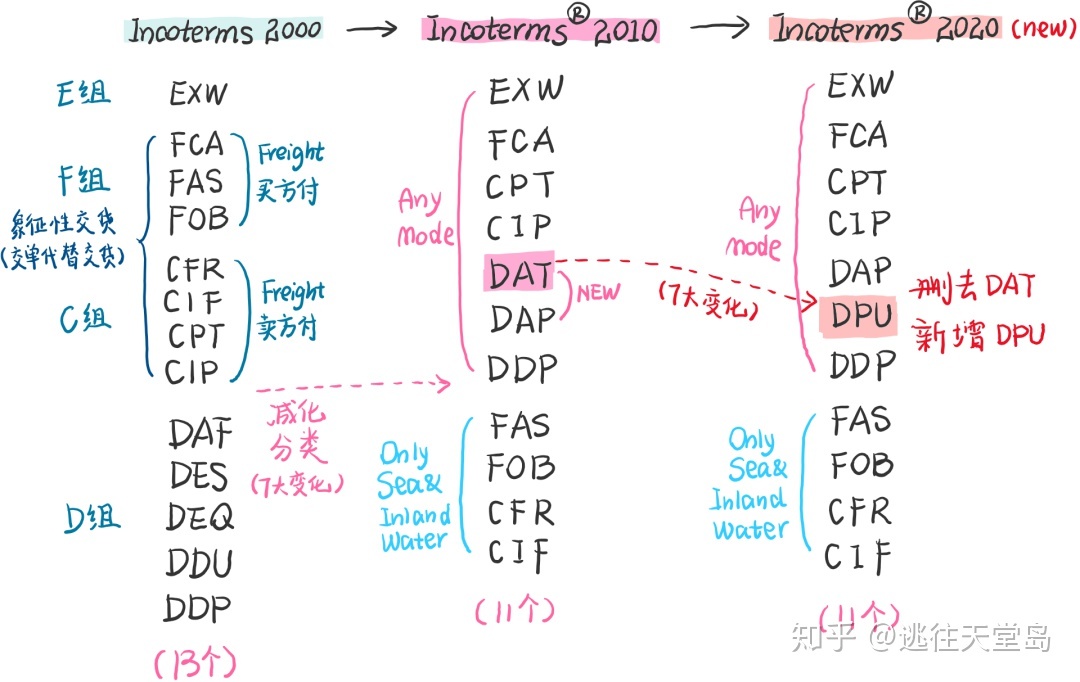 Incoterms 2000 → Incoterms® 2010 → Incoterms® 2020 (new)
E组
EXW
F组
象征性交货
(交单代替交货)
FCA
FAS
FOB
Freight
买方付
C组
CFR
CIF
CPT
CIP
Freight
卖方付
D组
DAF
DES
DEQ
DDU
DDP
(13个)
减化
分类
(7大变化)
Any
mode
EXW
FCA
CPT
CIP
DAT
DAP
NEW
DDP
Only
Sea&
Inland
Water
FAS
FOB
CFR
CIF
(11个)
(7大变化)
Any
mode
EXW
FCA
CPT
CIP
DAP
DPU
DDP
删去DAT
新增DPU
Only
Sea&
Inland
Water
FAS
FOB
CFR
CIF
(11个)
知乎 @逃往天堂岛